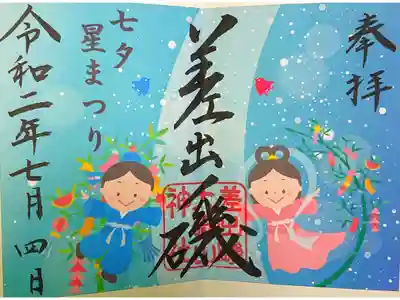 奉拝
差出磯
七夕
星まつり
令和二年七月四日